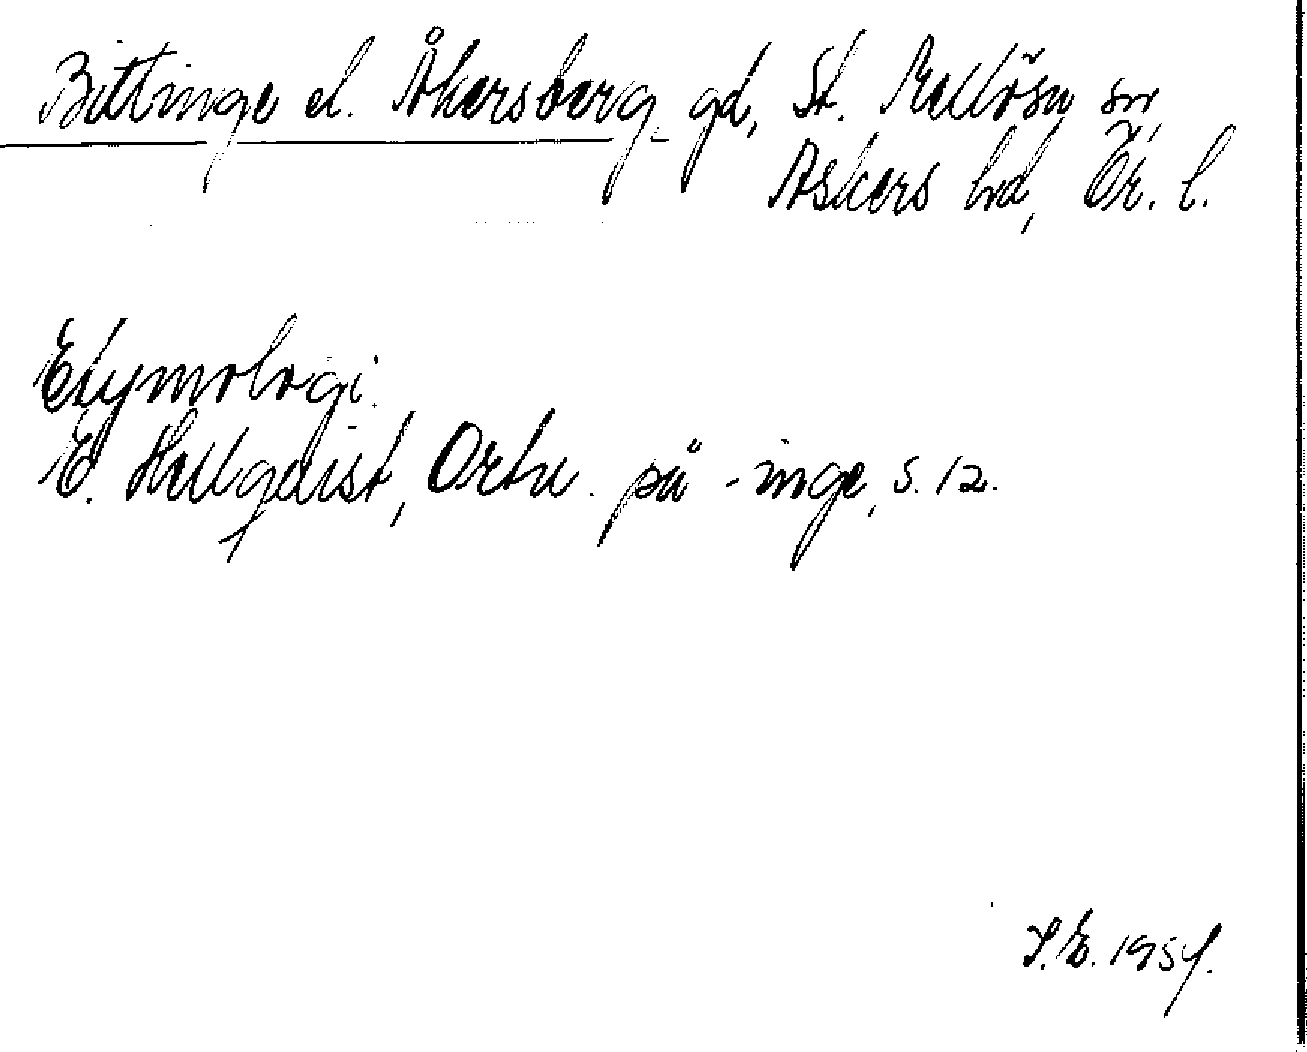 Bittinge el. Åkersberg gd, St. Mellösa sn
Askers hd, Ör. l.
Etymologi.
E. Hellquist, Ortn. på -inge, s. 12.
1954.